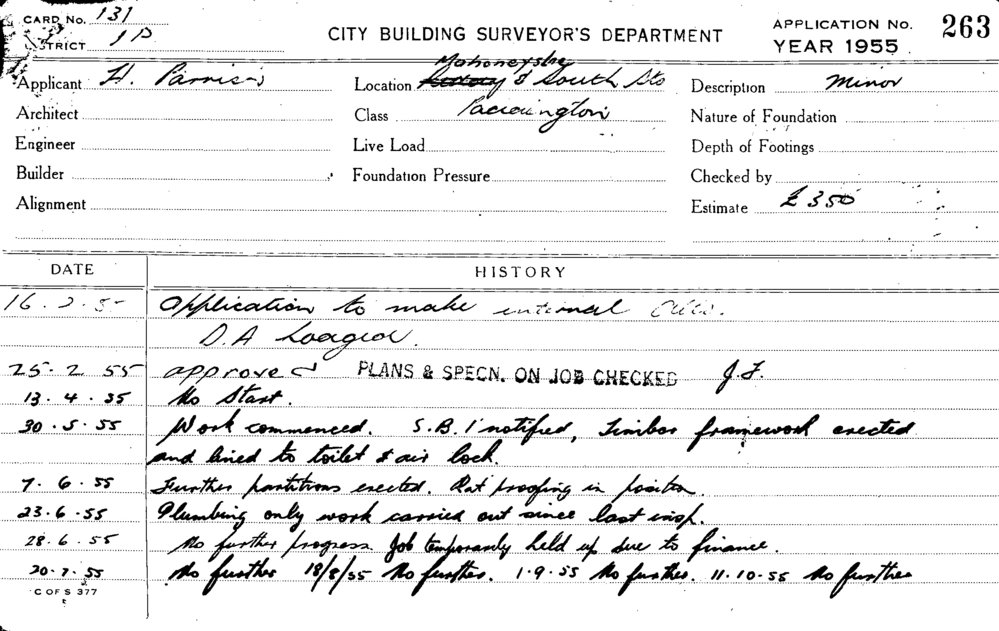 CARD No. 131
DISTRICT 1D
CITY BUILDING SURVEYOR'S DEPARTMENT
APPLICATION No. 263
YEAR 1955
Applicant H.
Location & South Sts
Description Minor
Architect
Class Paddington
Nature of Foundation
Engineer
Live Load
Depth of Footings
Builder
Foundation Pressure
Checked by
Alignment
Estimate £350
DATE HISTORY
16. 2. 5 Application to make internal
D.A
25. 2 55 approved PLANS & SPECN. ON JOB CHECKED J.F.
13. 4. 55 No Start.
30. 5. 55 Work commenced. S.B.I notified, Timber framework erected
and lined to toilet & air lock.
7. 6. 55 Further partitions erected. Rat proofing in position.
23. 6. 55 Plumbing only work carried out since last insp.
28. 6. 55 No further progress Job temporarily held up due to finance.
20. 7. 55 No further 18/8/55 No further. 1.9.55 No further. 11.10.55 No further
C OF S 377